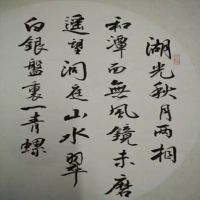 湖光秋月两相
和潭面无風鏡未磨
遥望洞庭山水翠
白銀盤裏一青螺